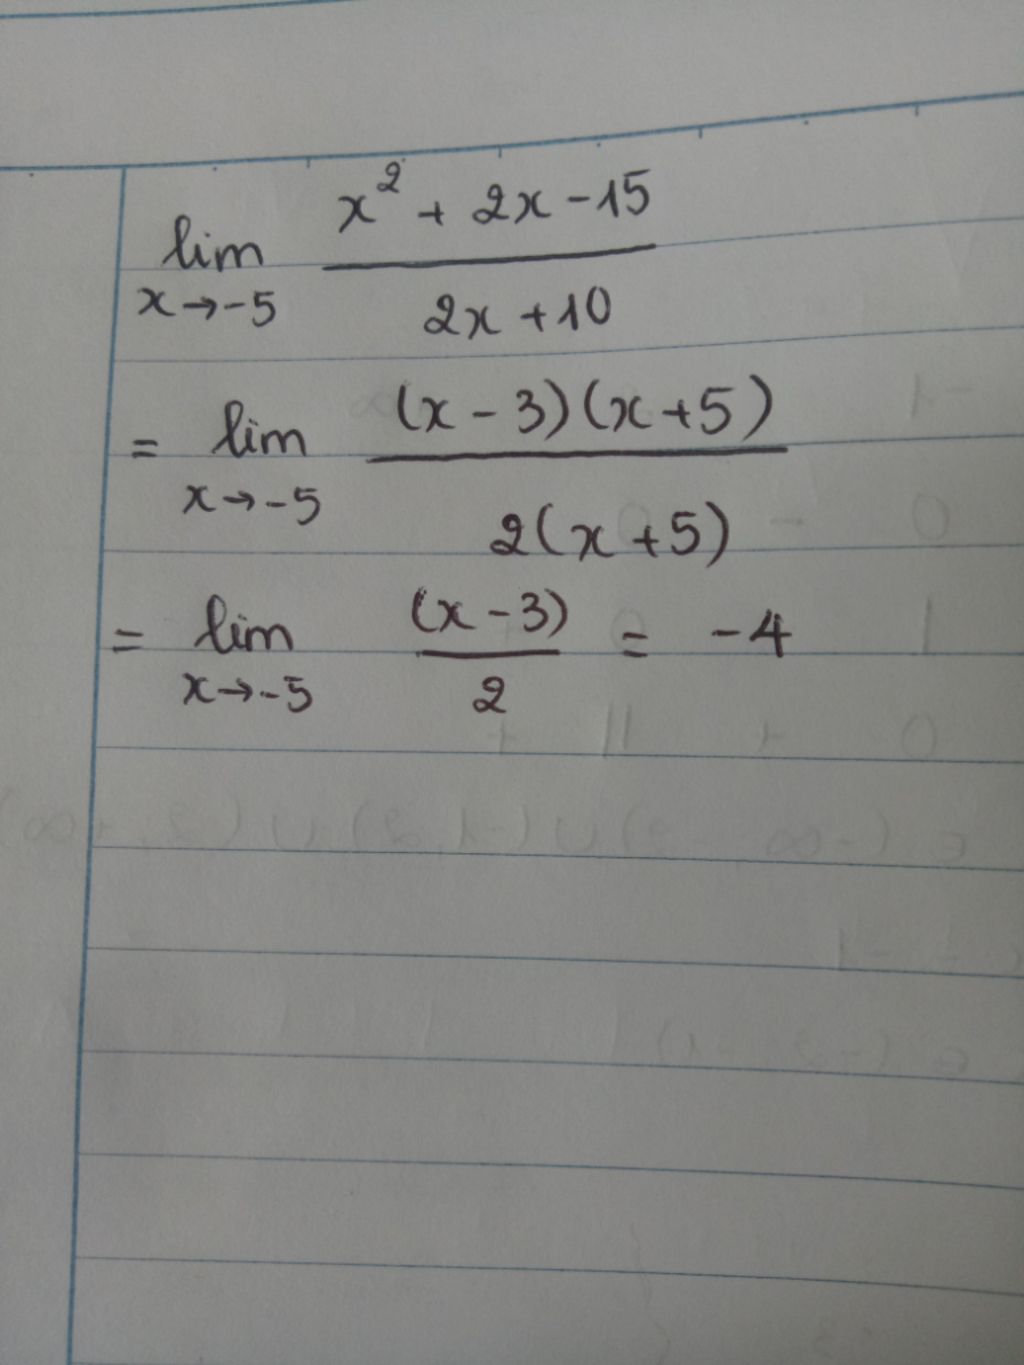 lim x→-5 (x² + 2x - 15)/(2x + 10)
= lim x→-5 ((x - 3)(x + 5))/(2(x + 5))
= lim x→-5 (x - 3)/2 = -4